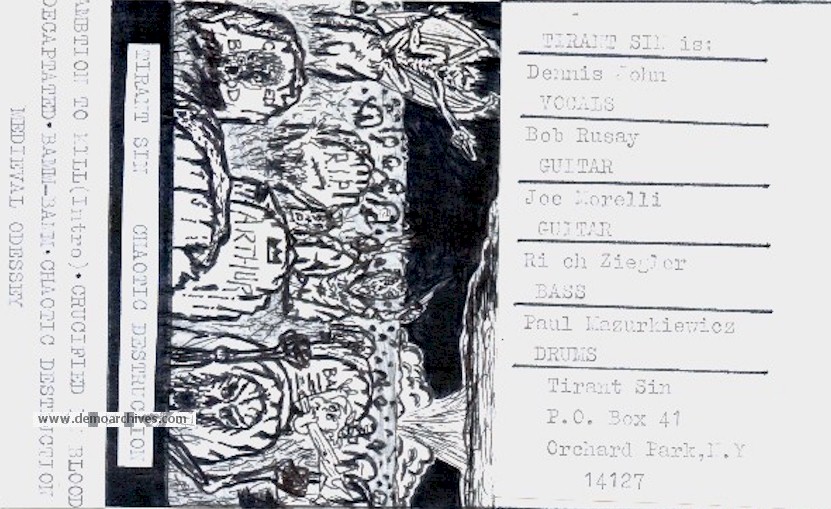 AMBTION TO KILL(Intro)•CRUCIFIED BLOOD
DECAPTATED•BAMM-BAMM•CHAOTIC DESTRUCTION
MEDIEVAL ODESSEY
TIRANT SIN CHAOTIC DESTRUCTION
RIP
ARTHUR
TIRANT SIN is:
Dennis John
VOCALS
Bob Rusay
GUITAR
Joe Morelli
GUITAR
Rich Ziegler
BASS
Paul Mazurkiewicz
DRUMS
Tirant Sin
P.O. Box 41
Orchard Park,N.Y
14127
www.demoarchives.com